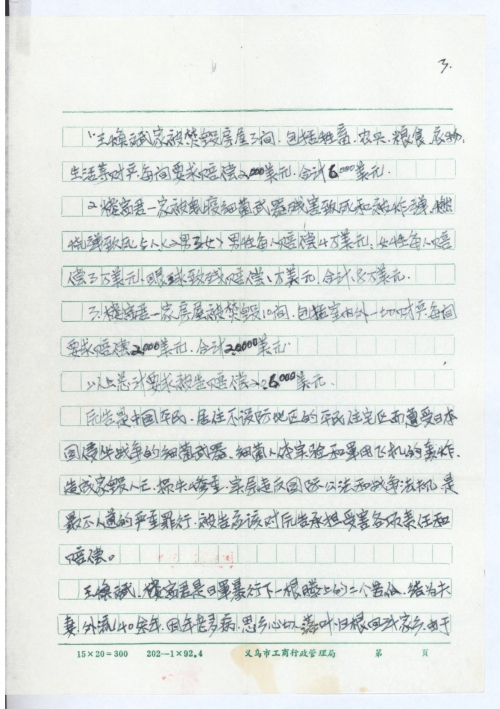 3.
1、王焕斌家被焚毁房屋三间，包括牲畜、农具、粮食、衣物、
生活等财产每间要求赔偿2,000美元，合计6,000美元。
害致死和被炸弹、燃
烧弹致死5人（2男3女）男性每人赔偿4万美元，女性每人赔
偿3万美元，眼球致残赔偿1万美元，合计18万美元。
一家房屋被焚毁10间，包括室内外一切财产每间
要求赔偿2,000美元，合计20,000美元。
以上总计要求被告赔偿206,000美元。
原告是中国平民，居住不设防地区的平民住宅区而遭受日本
国侵华战争的细菌武器、细菌人体实验和军用飞机的轰炸，
造成家毁人亡，损失惨重，实属违反国际公法和战争法规，是
最不人道的严重罪行，被告应该对原告承担受害各项责任和
赔偿。
王焕斌、君是日军暴行下一根藤上的二个苦瓜，结为夫
妻，外流40余年，因年老多病，思乡心切，落叶归根回到家乡，由于
15×20=300 202—1×92.4 义乌市工商行政管理局 第 页